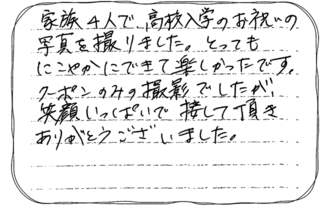 家族4人で、高校入学のお祝いの
写真を撮りました。とっても
にこやかにできて楽しかったです。
クーポンのみの撮影でしたが、
笑顔いっぱいで接して頂き
ありがとうございました。